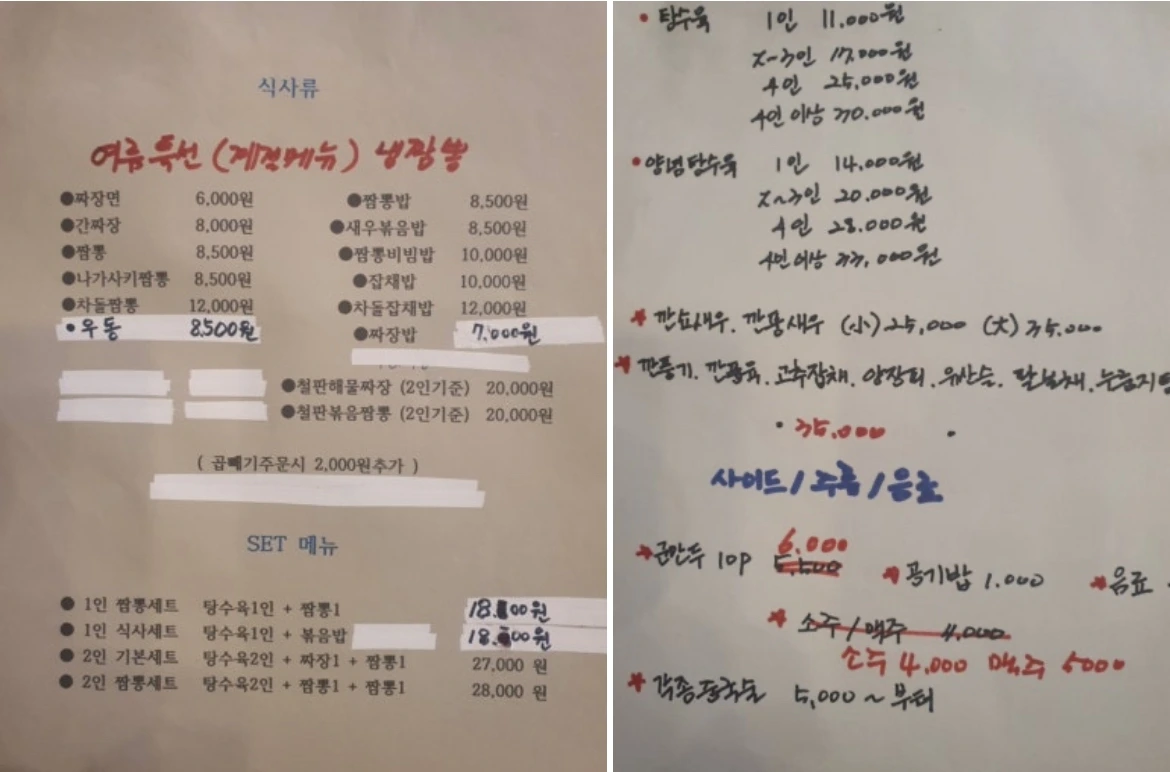 식사류
여름특선 (계절메뉴) 냉짬뽕
●짜장면 6,000원
●간짜장 8,000원
●짬뽕 8,500원
●나가사키짬뽕 8,500원
●차돌짬뽕 12,000원
•우동 8,500원
●짬뽕밥 8,500원
●새우볶음밥 8,500원
●짬뽕비빔밥 10,000원
●잡채밥 10,000원
●차돌잡채밥 12,000원
●짜장밥 7,000원
●철판해물짜장 (2인기준) 20,000원
●철판볶음짬뽕 (2인기준) 20,000원
( 곱빼기주문시 2,000원추가 )
SET 메뉴
● 1인 짬뽕세트 탕수육1인 + 짬뽕1
● 1인 식사세트 탕수육1인 + 볶음밥
● 2인 기본세트 탕수육2인 + 짜장1 + 짬뽕1 27,000 원
● 2인 짬뽕세트 탕수육2인 + 짬뽕1 + 짬뽕1 28,000 원
• 탕수육 1인 11,000원
2~3인 17,000원
4인 25,000원
4인 이상 30,000원
• 양념탕수육 1인 14,000원
2~3인 20,000원
4인 28,000원
4인 이상 33,000원
* 깐쇼새우. 깐풍새우 (小) 25,000 (大) 35,000
* 깐풍기. 깐풍육. 고추잡채. 양장피. 유산슬. 팔보채.
• 35,000 •
사이드 / 주류 / 음료
* 군만두 10P 6,000 5,500
* 공기밥 1,000
* 음료
* 소주 / 맥주 4,000
소주 4,000 맥주 5000
* 각종중국술 5,000 ~ 부터